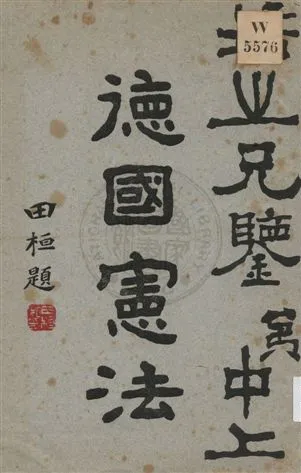 W
5576
之兄鑒
中上
德國憲法
田桓題